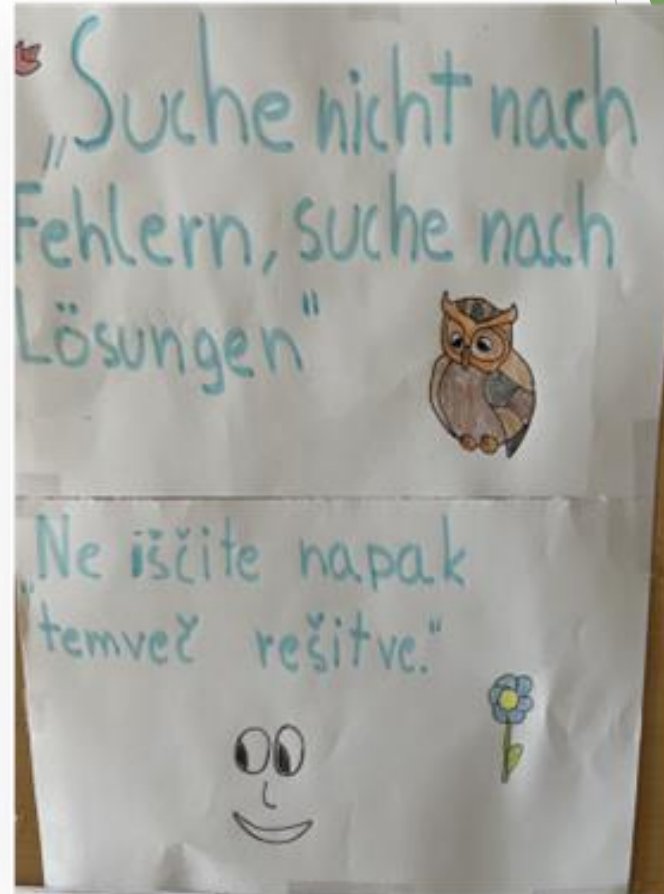 „Suche nicht nach
Fehlern, suche nach
Lösungen"
„Ne iščite napak
temveč rešitve."